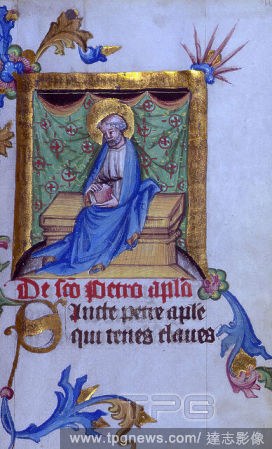 De sco Pietro aplo
Sancte petre aple
qui tenes claves
TPG
www.tpgnews.com/ 達志影像